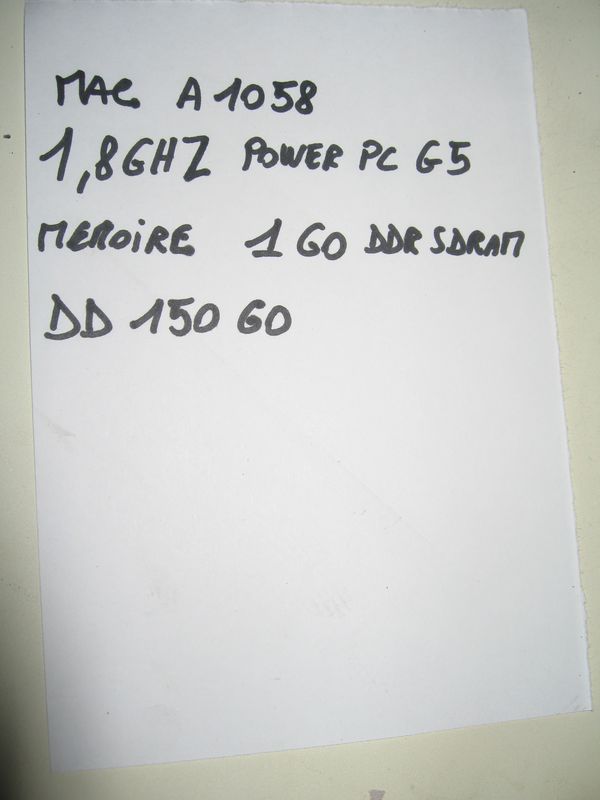 MAC A 1058
1,8 GHZ POWER PC G5
MEMOIRE 1 GO DDR SDRAM
DD 150 GO